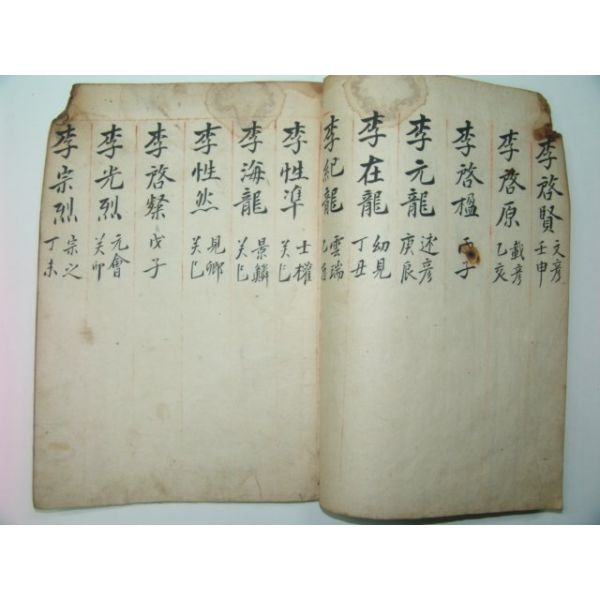 李啓賢 文彦 壬申
李啓原 載彦 乙亥
李啓楹 丙子
李元龍 述彦 庚辰
李在龍 幼見 丁丑
李紀龍 雲瑞
李性準 士櫂 癸巳
李海龍 景麟 癸巳
李性然 見卿 癸巳
李啓燦 戊子
李光烈 元會 癸卯
李宗烈 宗之 丁未